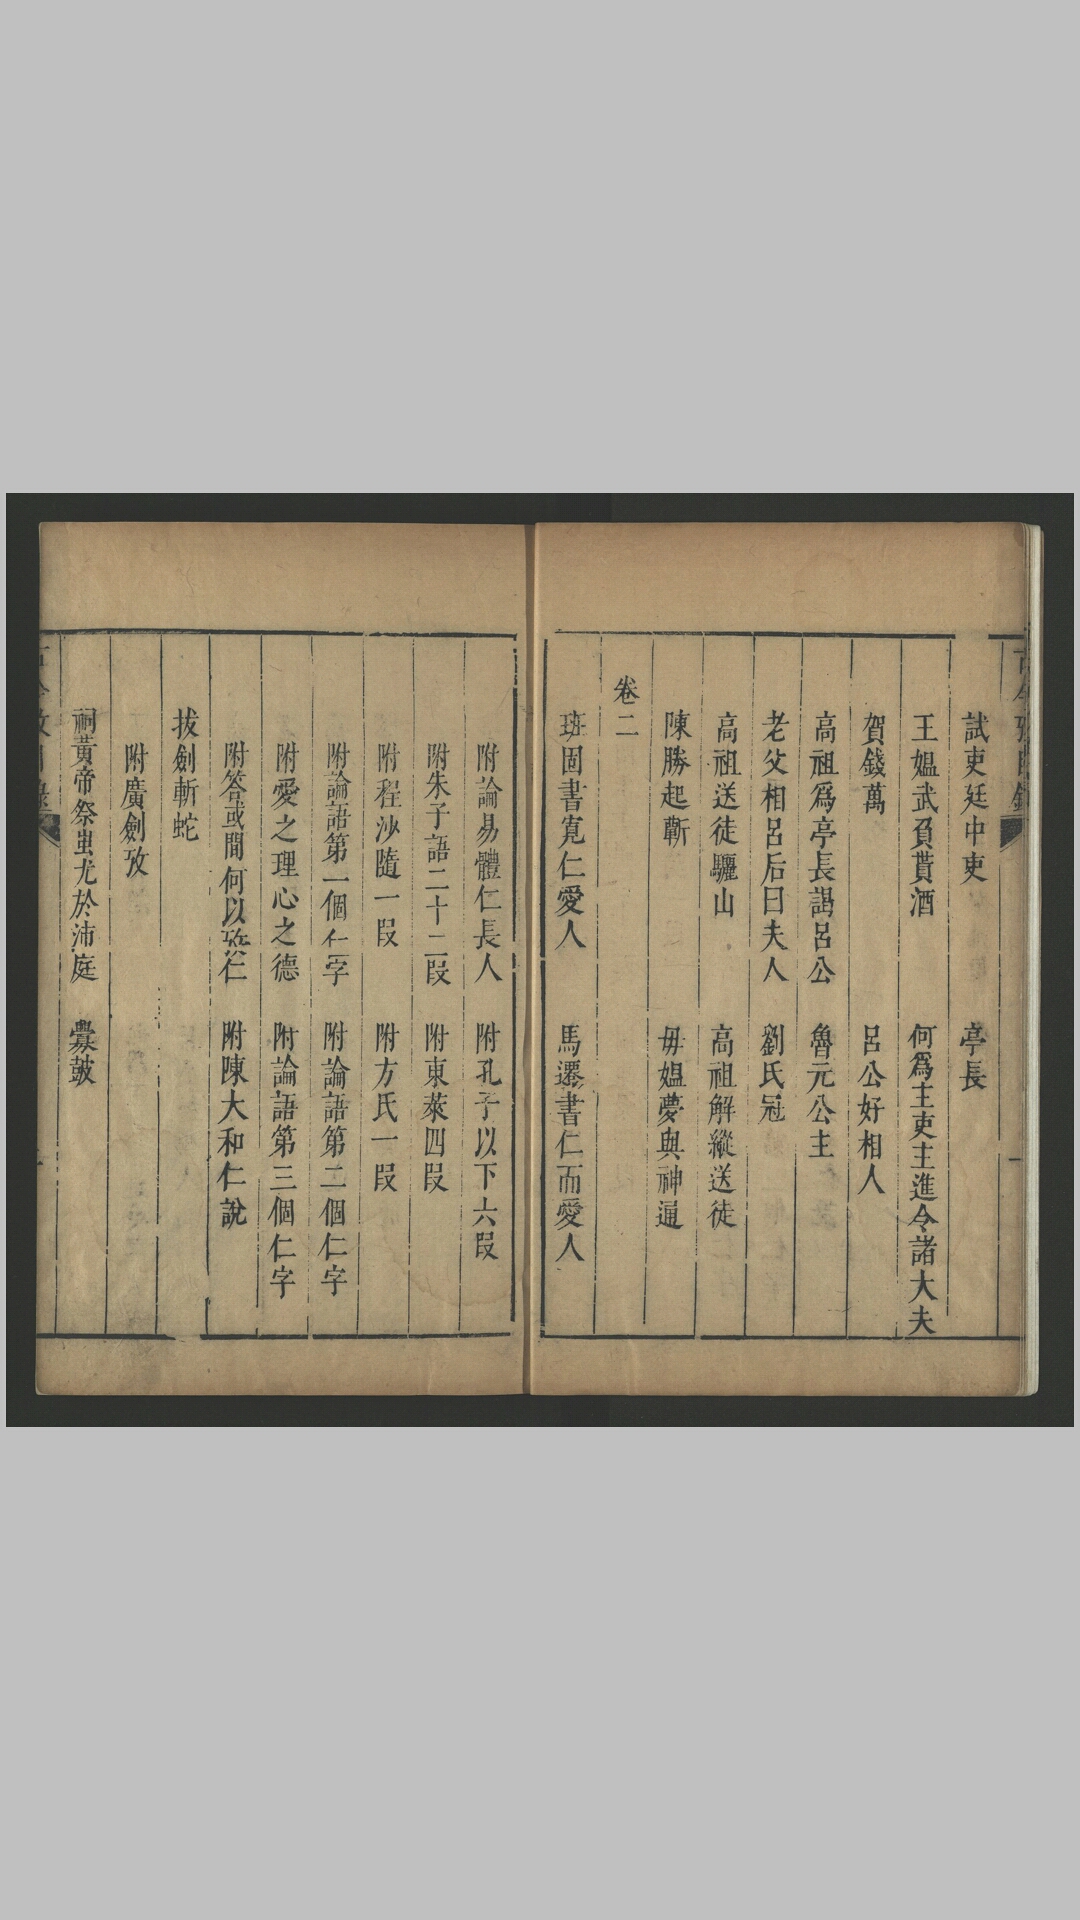 試吏廷中吏　亭長
王媪武負貰酒　何爲主吏主進令諸大夫
賀錢萬　呂公好相人
高祖爲亭長謁呂公　魯元公主
老父相呂后曰夫人　劉氏冠
高祖送徒驪山　高祖解縱送徒
陳勝起蘄　毋媪夢與神通
卷二
班固書寬仁愛人　馬遷書仁而愛人
附論易體仁長人　附孔子以下六段
附朱子語二十二段　附東萊四段
附程沙隨一段　附方氏一段
附論語第一個仁字　附論語第二個仁字
附愛之理心之德　附論語第三個仁字
附答或問何以攷仁　附陳大和仁說
拔劍斬蛇
附廣劍攷
祠黃帝祭蚩尤於沛庭　釁鼓